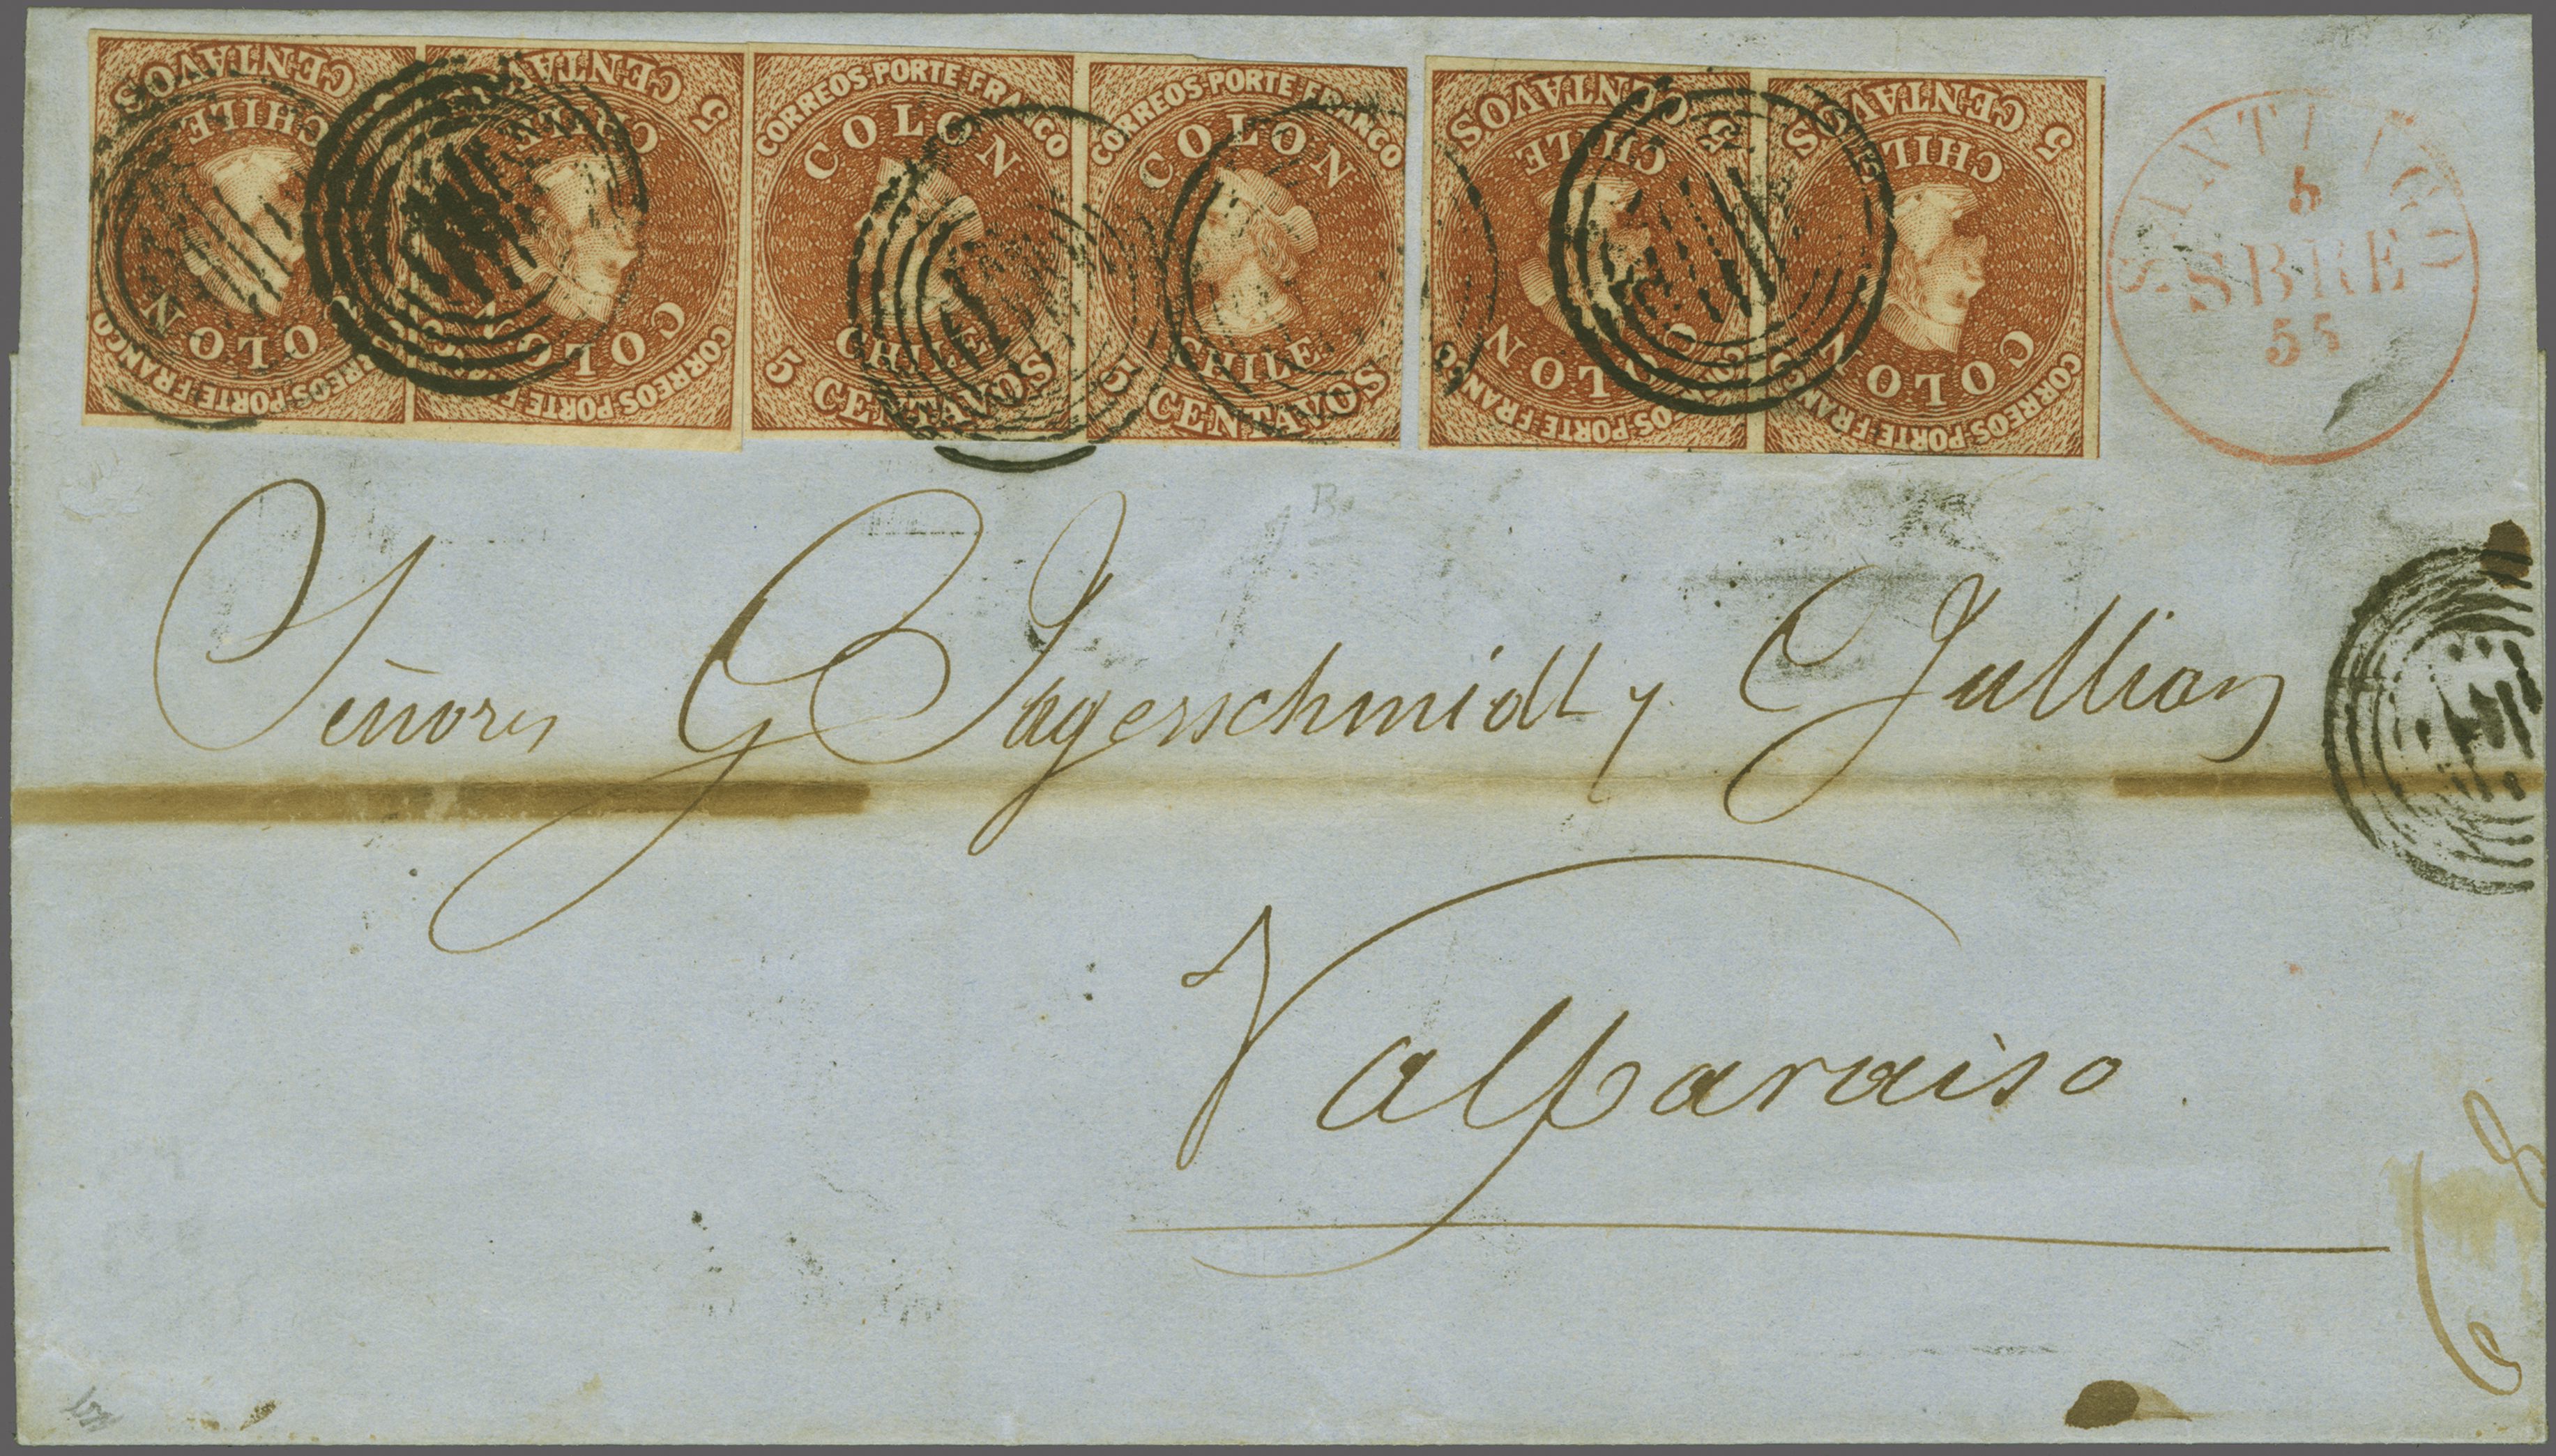 CORREOS·PORTE·FRANCO
COLON
CHILE
5 CENTAVOS
CORREOS·PORTE·FRANCO
COLON
CHILE
5 CENTAVOS
CORREOS·PORTE·FRANCO
COLON
CHILE
5 CENTAVOS
CORREOS·PORTE·FRANCO
COLON
CHILE
5 CENTAVOS
CORREOS·PORTE·FRANCO
COLON
CHILE
5 CENTAVOS
CORREOS·PORTE·FRANCO
COLON
CHILE
5 CENTAVOS
SANTIAGO
5
SBRE
55
Señores Jagerschmidt y Jullian
Valparaiso